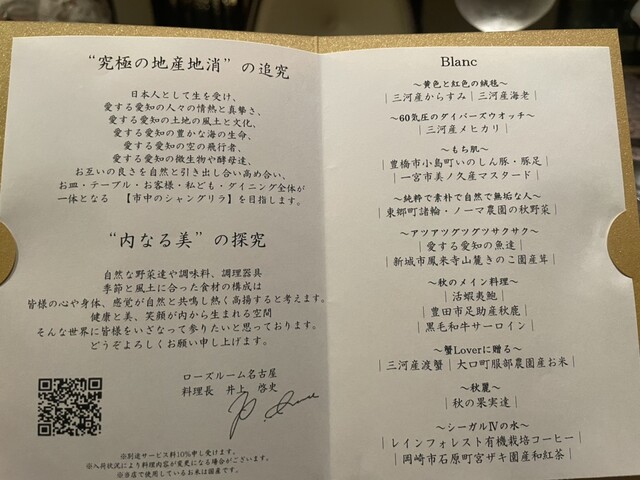 “究極の地産地消” の追究
日本人として生を受け、
愛する愛知の人々の情熱と真摯さ、
愛する愛知の土地の風土と文化、
愛する愛知の豊かな海の生命、
愛する愛知の空の飛行者、
愛する愛知の微生物や酵母達、
お互いの良さを自然と引き出し合い高め合い、
お皿・テーブル・お客様・私ども・ダイニング全体が
一体となる 【市中のシャングリラ】を目指します。
“内なる美” の探究
自然な野菜達や調味料、調理器具
季節と風土に合った食材の構成は
皆様の心や身体、感覚が自然と共鳴し熱く高揚すると考えます。
健康と美、笑顔が内から生まれる空間
そんな世界に皆様をいざなって参りたいと思っております。
どうぞよろしくお願い申し上げます。
ローズルーム名古屋
料理長 井上 啓史
※別途サービス料10%申し受けます。
※入荷状況により料理内容が変更になる場合がございます。
※当店で使用しているお米は国産です。
Blanc
～黄色と紅色の絨毯～
｜三河産からすみ｜三河産海老｜
～60気圧のダイバーズウオッチ～
｜三河産メヒカリ｜
～もち肌～
｜豊橋市小島町いのしん豚・豚足｜
｜一宮市美ノ久産マスタード｜
～純粋で素朴で自然で無垢な人～
｜東郷町諸輪・ノーマ農園の秋野菜｜
～アツアツグツグツサクサク～
｜愛する愛知の魚達｜
｜新城市鳳来寺山麓きのこ園産茸｜
～秋のメイン料理～
｜活蝦夷鮑｜
｜豊田市足助産秋鹿｜
｜黒毛和牛サーロイン｜
～蟹Loverに贈る～
｜三河産渡蟹｜大口町服部農園産お米｜
～秋麗～
｜秋の果実達｜
～シーガルⅣの水～
｜レインフォレスト有機栽培コーヒー｜
｜岡崎市石原町宮ザキ園産和紅茶｜